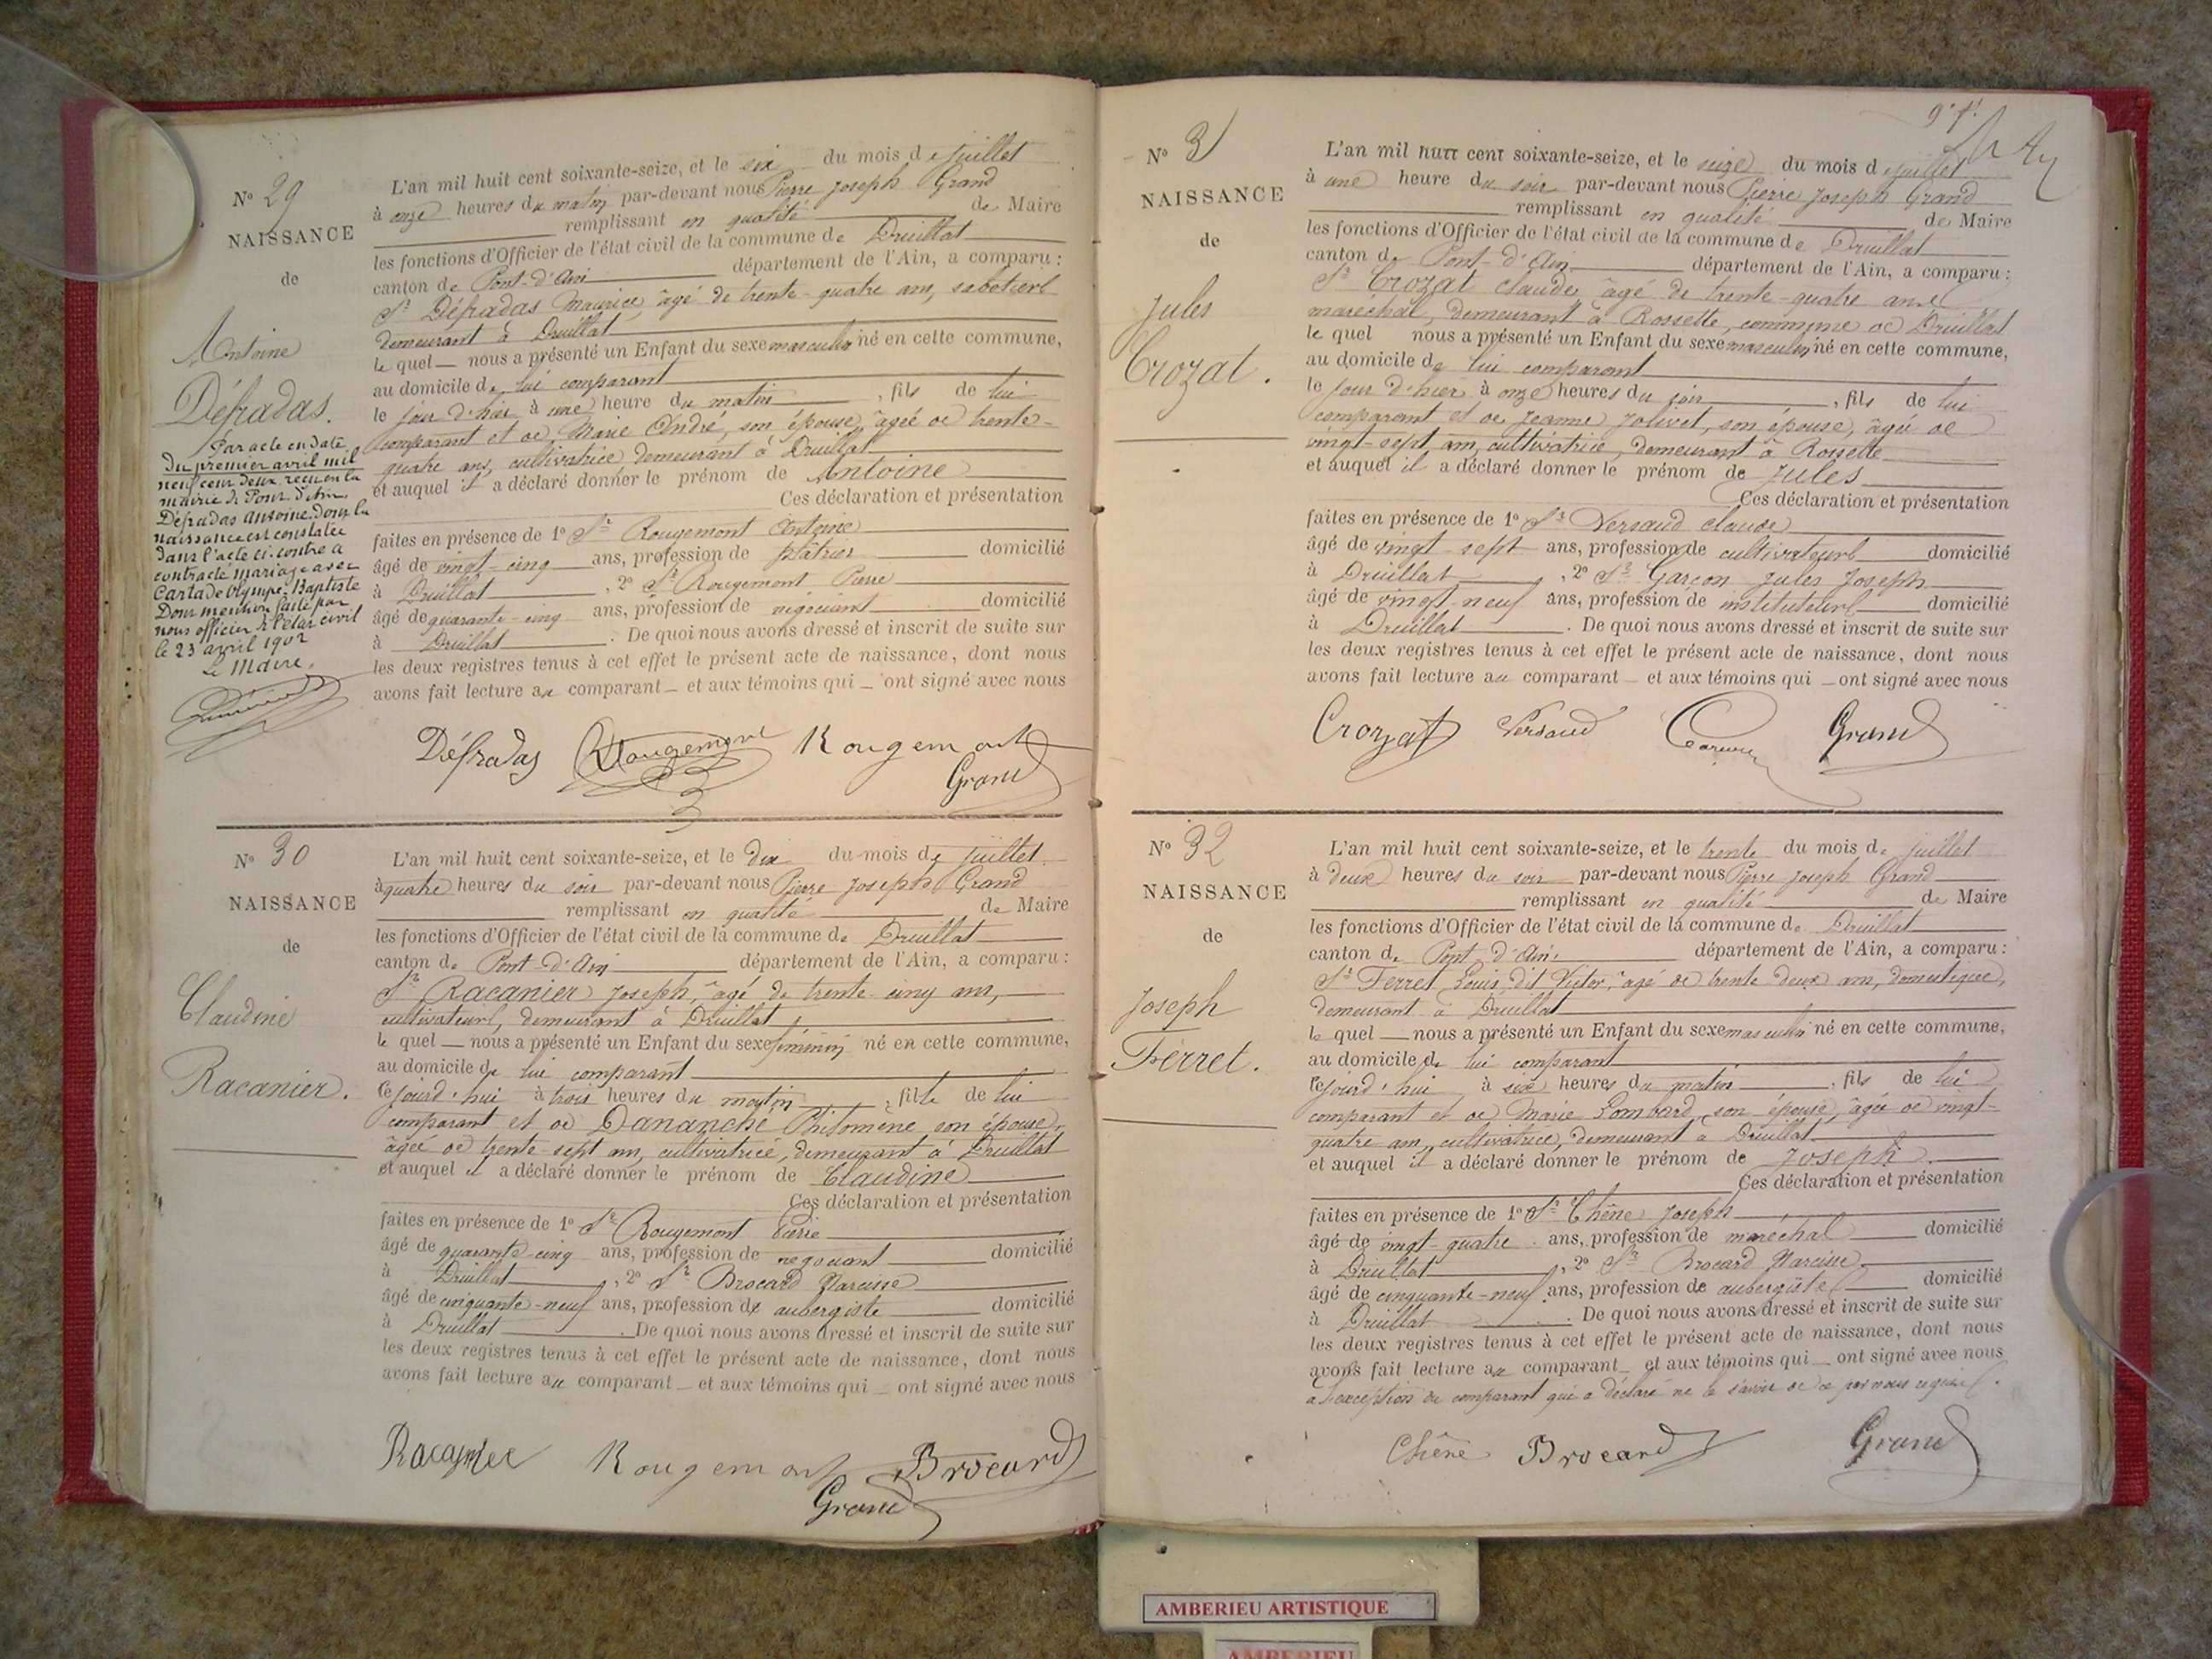 N° 29
NAISSANCE
de
Antoine
Défradas.
Par acte en date
du premier avril mil
neuf cent deux reçu en la
mairie de Pont d'Ain,
Défradas Antoine dont la
naissance est constatée
dans l'acte ci-contre a
contracté mariage avec
Olympe Baptiste
Dont mention faite par
nous officier de l'état civil
le 23 avril 1902
Le Maire,
L'an mil huit cent soixante-seize, et le six du mois de juillet
à onze heures du matin par-devant nous Pierre Joseph Grand
remplissant en qualité de Maire
les fonctions d'Officier de l'état civil de la commune de Druillat
canton de Pont-d'Ain département de l'Ain, a comparu :
Sr Défradas Maurice, âgé de trente-quatre ans,
demeurant à Druillat
le quel nous a présenté un Enfant du sexe masculin né en cette commune,
au domicile de lui comparant
le jour d'hier à une heure du matin, fils de lui
comparant et de Marie André, son épouse, âgée de trente-
quatre ans, cultivatrice demeurant à Druillat
et auquel il a déclaré donner le prénom de Antoine
Ces déclaration et présentation
faites en présence de 1° Sr Rougemont Antoine
âgé de vingt-cinq ans, profession de plâtrier domicilié
à Druillat, 2° Sr Rougemont Pierre
âgé de quarante-cinq ans, profession de négociant domicilié
à Druillat. De quoi nous avons dressé et inscrit de suite sur
les deux registres tenus à cet effet le présent acte de naissance, dont nous
avons fait lecture au comparant et aux témoins qui ont signé avec nous
Défradas Rougemont Rougemont
Grand
N° 30
NAISSANCE
de
Claudine
Racanier.
L'an mil huit cent soixante-seize, et le dix du mois de juillet
à quatre heures du soir par-devant nous Pierre Joseph Grand
remplissant en qualité de Maire
les fonctions d'Officier de l'état civil de la commune de Druillat
canton de Pont-d'Ain département de l'Ain, a comparu :
Sr Racanier Joseph, âgé de trente cinq ans,
cultivateur, demeurant à Druillat
le quel nous a présenté un Enfant du sexe féminin né en cette commune,
au domicile de lui comparant
cejourd'hui à trois heures du matin, fille de lui
comparant et de Dananche Philomène son épouse,
âgée de trente-sept ans, cultivatrice, demeurant à Druillat
et auquel il a déclaré donner le prénom de Claudine
Ces déclaration et présentation
faites en présence de 1° Sr Rougemont Pierre
âgé de quarante-cinq ans, profession de négociant domicilié
à Druillat, 2° Sr Brocard Narcisse
âgé de cinquante-neuf ans, profession de aubergiste domicilié
à Druillat. De quoi nous avons dressé et inscrit de suite sur
les deux registres tenus à cet effet le présent acte de naissance, dont nous
avons fait lecture au comparant et aux témoins qui ont signé avec nous
Racanier Rougemont Brocard
Grand
N° 31
NAISSANCE
de
Jules
Crozat.
L'an mil huit cent soixante-seize, et le seize du mois de juillet
à une heure du soir par-devant nous Pierre Joseph Grand
remplissant en qualité de Maire
les fonctions d'Officier de l'état civil de la commune de Druillat
canton de Pont-d'Ain département de l'Ain, a comparu :
Sr Crozat Claude, âgé de trente-quatre ans
maréchal, demeurant à Rossette, commune de Druillat
le quel nous a présenté un Enfant du sexe masculin né en cette commune,
au domicile de lui comparant
le jour d'hier à onze heures du soir, fils de lui
comparant et de Jeanne Jolivet, son épouse, âgée de
vingt-sept ans, cultivatrice, demeurant à Rossette
et auquel il a déclaré donner le prénom de Jules
Ces déclaration et présentation
faites en présence de 1° Sr Versaud Claude
âgé de vingt-sept ans, profession de cultivateur domicilié
à Druillat, 2° Sr Garçon Jules Joseph
âgé de vingt-neuf ans, profession de instituteur domicilié
à Druillat. De quoi nous avons dressé et inscrit de suite sur
les deux registres tenus à cet effet le présent acte de naissance, dont nous
avons fait lecture au comparant et aux témoins qui ont signé avec nous
Crozat Versaud Grand
N° 32
NAISSANCE
de
Joseph
Ferret.
L'an mil huit cent soixante-seize, et le trente du mois de juillet
à deux heures du soir par-devant nous Pierre Joseph Grand
remplissant en qualité de Maire
les fonctions d'Officier de l'état civil de la commune de Druillat
canton de Pont-d'Ain département de l'Ain, a comparu :
Sr Ferret Louis, dit Victor, âgé de trente deux ans, domestique,
demeurant à Druillat
le quel nous a présenté un Enfant du sexe masculin né en cette commune,
au domicile de lui comparant
cejourd'hui à six heures du matin, fils de lui
comparant et de Marie Lombard, son épouse, âgée de vingt-
quatre ans, cultivatrice, demeurant à Druillat
et auquel il a déclaré donner le prénom de Joseph
Ces déclaration et présentation
faites en présence de 1° Sr Chêne Joseph
âgé de vingt-quatre ans, profession de maréchal domicilié
à Druillat, 2° Sr Brocard Narcisse
âgé de cinquante-neuf ans, profession de aubergiste domicilié
à Druillat. De quoi nous avons dressé et inscrit de suite sur
les deux registres tenus à cet effet le présent acte de naissance, dont nous
avons fait lecture au comparant et aux témoins qui ont signé avec nous
à l'exception du comparant qui a déclaré ne le savoir de ce par nous requis.
Chêne Brocard Grand
AMBERIEU ARTISTIQUE
AMBERIEU